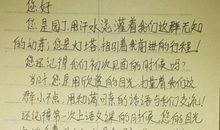 您好
您是园丁,用汗水浇灌着我们这群无知
的幼苗;您是灯塔,指引着我前进的行程!
您还记得我们初次见面的时候吗?
您是用欣赏的目光打量着我们这群
小不点,用和蔼可亲的话语与我们交流!
还记得第一次上语文课的时候,您的目光